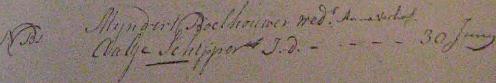 Myndert Boelhouwer wedr. Anna Verhoef
NB. Aaltje Schipper J.d. - - - - - 30 Juny